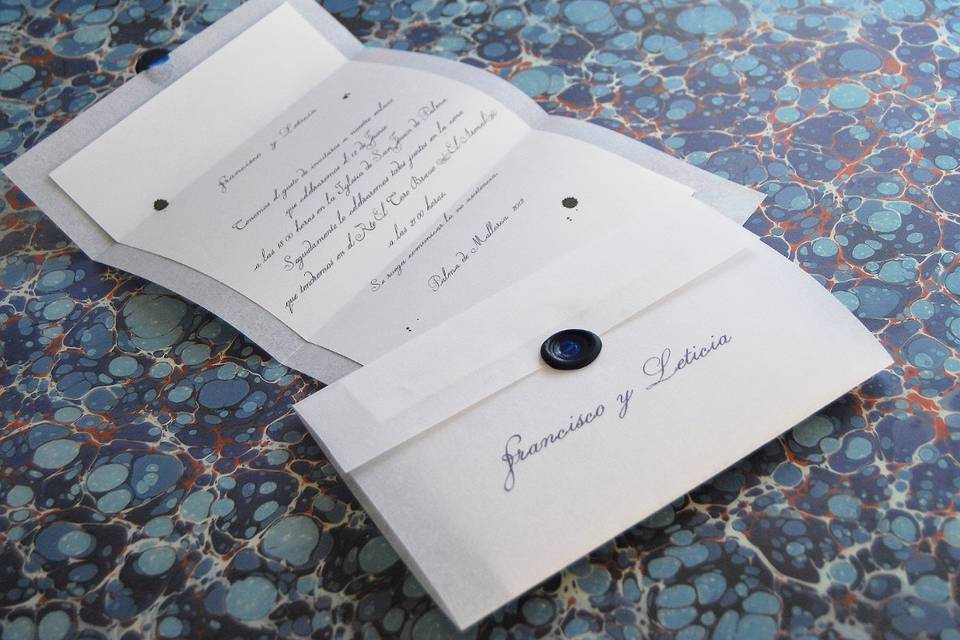 Francisco y Leticia
Tenemos el gusto de invitaros a nuestro enlace
que celebraremos el 12 de Junio
a las 18:00 horas en la Iglesia de San Juan de Palma
Seguidamente lo celebraremos todos juntos en la cena
que tendremos en el Rte El Toro Bravo
a las 21:00 horas.
Se ruega comuniquéis la no asistencia.
Palma de Mallorca, 2013
Francisco y Leticia